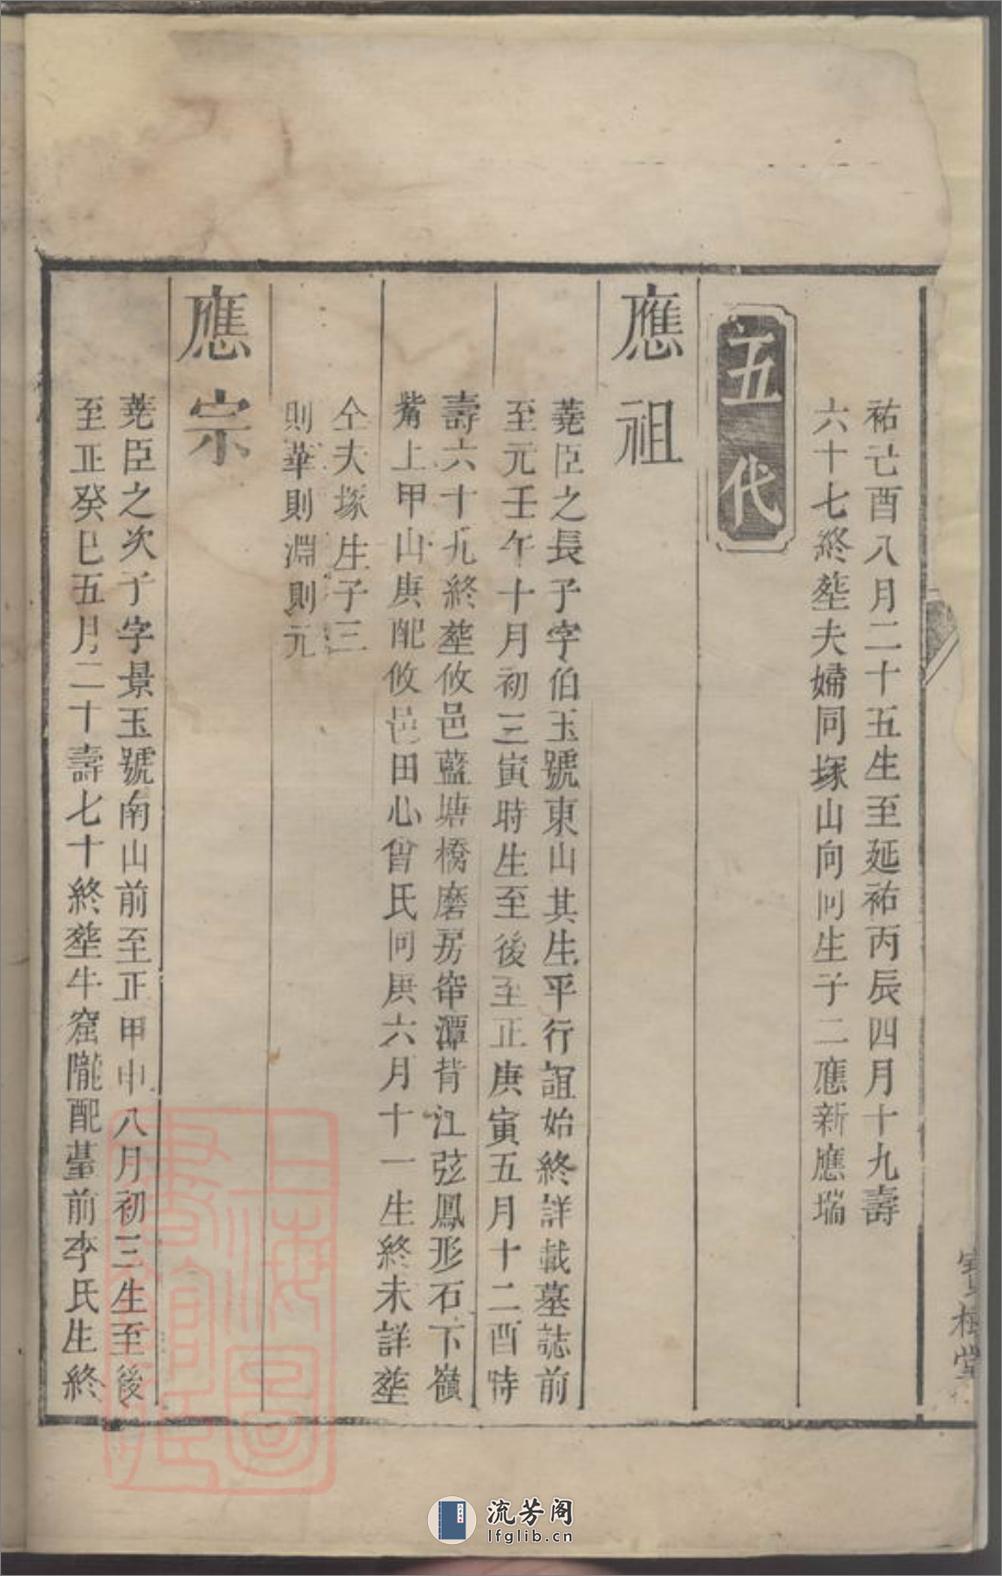 祐己酉八月二十五生至延祐丙辰四月十九壽
六十七終塟夫婦同塚山向同生子二應新應瑞
五代
應祖
蕘臣之長子字伯玉號東山其生平行誼始終詳載墓誌前
至元壬午十月初三寅時生至後至正庚寅五月十二酉時
壽六十九終塟攸邑藍塘橋磨房窂潭背江弦鳳形石下嶺
觜上甲山庚配攸邑田心曾氏同庚六月十一生終未詳塟
仝夫塚生子三
則華則淵則元
應宗
蕘臣之次子字景玉號南山前至正甲申八月初三生至後
至正癸巳五月二十壽七十終塟牛窟隴配墓前李氏生終
寶樹堂
上海圖書館藏
流芳阁
lfglib.cn